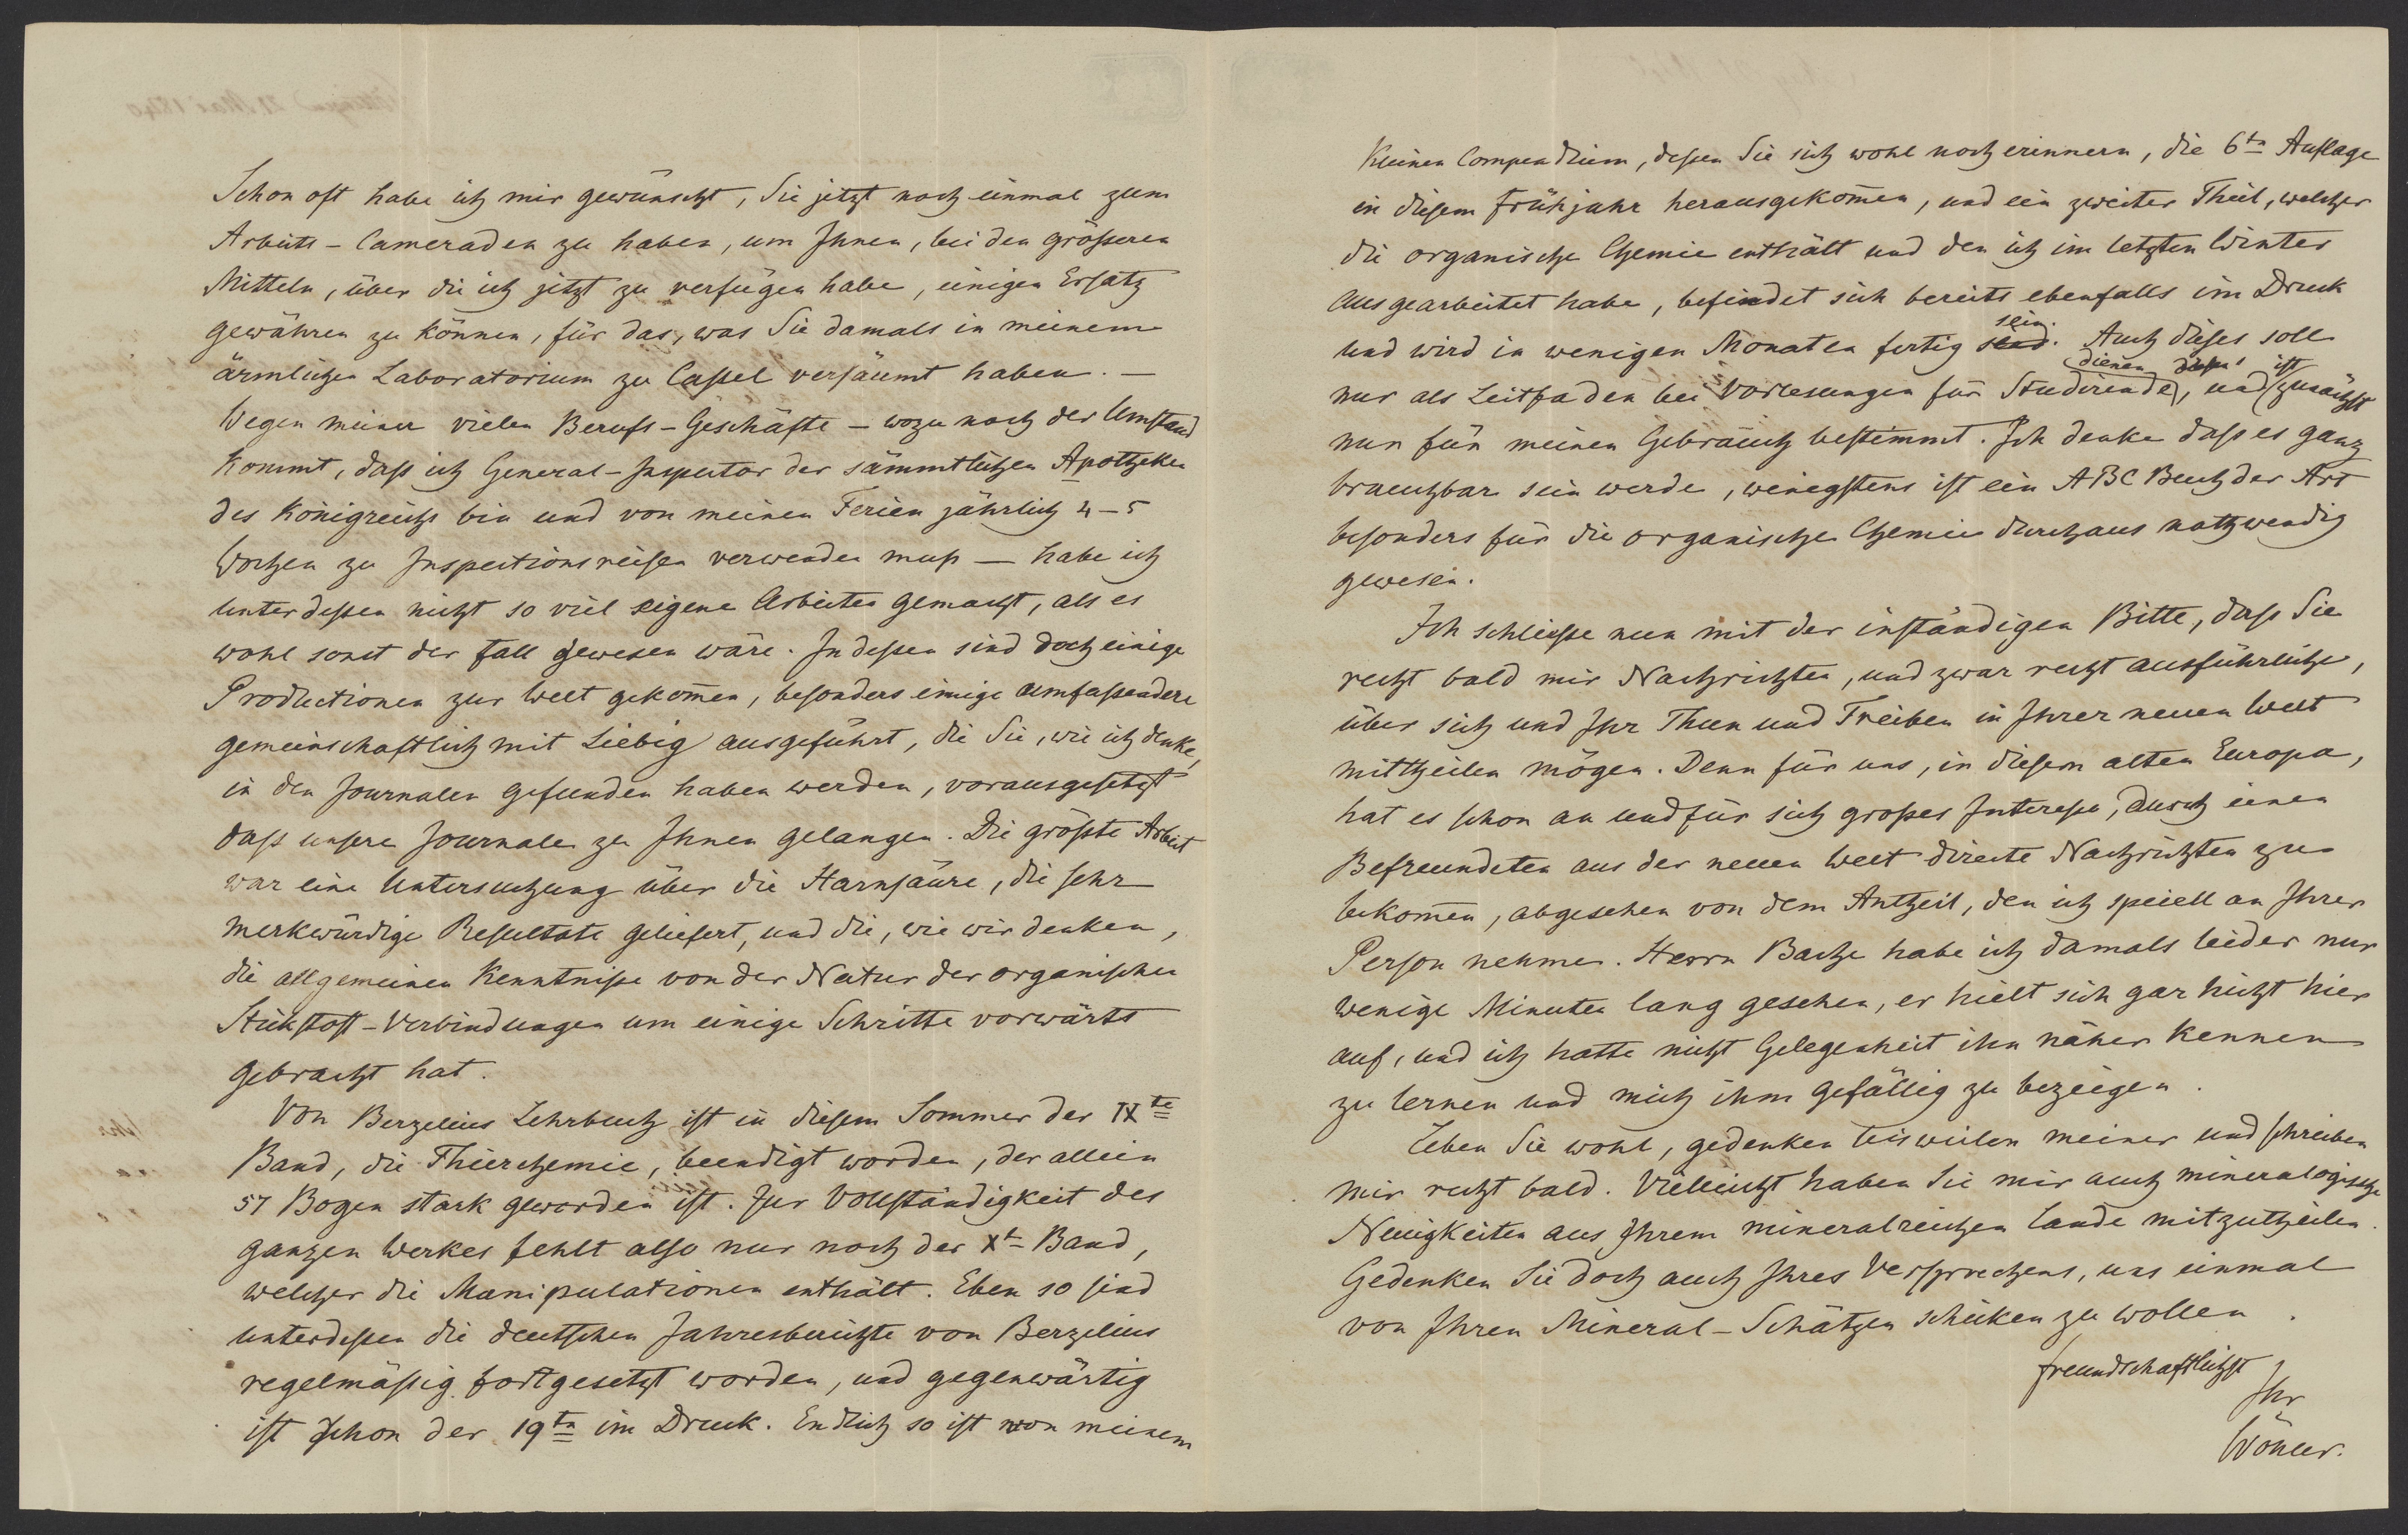 Schon oft habe ich mir gewünscht, Sie jetzt noch einmal zum
Arbeits-Cameraden zu haben, um Ihnen, bei den größeren
Mitteln, über die ich jetzt zu verfügen habe, einigen Ersatz
gewähren zu können, für das, was Sie damals in meinem
ärmlichen Laboratorium zu Cassel versäumt haben. —
Wegen meiner vielen Berufs-Geschäfte — wozu noch der Umstand
kommt, daß ich General-Inspector der sämmtlichen Apotheken
des Königreichs bin und von meinen Ferien jährlich 4-5
Wochen zu Inspectionsreisen verwenden muß — habe ich
unterdessen nicht so viel eigene Arbeiten gemacht, als es
wohl sonst der Fall gewesen wäre. Indessen sind doch einige
Productionen zur Welt gekom̄en, besonders einige umfassendere
gemeinschaftlich mit Liebig ausgeführt, die Sie, wie ich denke,
in den Journalen gefunden haben werden, vorausgesetzt
daß unsere Journale zu Ihnen gelangen. Die größte Arbeit
war eine Untersuchung über die Harnsäure, die sehr
merkwürdige Resultate geliefert, und die, wie wir denken,
die allgemeinen Kenntnisse von der Natur der organischen
Stickstoff-Verbindungen um einige Schritte vorwärts
gebracht hat.
Von Berzelius Lehrbuch ist in diesem Sommer der IXte
Band, die Thierchemie, beendigt worden, der allein
57 Bogen stark geworden ist. Zur Vollständigkeit des
ganzen Werkes fehlt also nur noch der Xte Band,
welcher die Manipulationen enthält. Eben so sind
unterdessen die deutschen Jahresberichte von Berzelius
regelmäßig fortgesetzt worden, und gegenwärtig
ist schon der 19te im Druck. Endlich so ist von meinem
kleinen Compendium, dessen Sie sich wohl noch erinnern, die 6te Auflage
in diesem Frühjahr herausgekom̄en, und ein zweiter Theil, welcher
die organische Chemie enthält und den ich im letzten Winter
ausgearbeitet habe, befindet sich bereits ebenfalls im Druck
und wird in wenigen Monaten fertig sein. Auch dieses soll
nur als Leitfaden bei Vorlesungen für Studirende dienen, und ist zunächst
nur für meinen Gebrauch bestimmt. Ich denke daß es ganz
brauchbar sein werde, wenigstens ist ein ABC Buch der Art
besonders für die organische Chemie durchaus nothwendig
gewesen.
Ich schließe nun mit der inständigen Bitte, daß Sie
recht bald mir Nachrichten, und zwar recht ausführliche,
über sich und Ihr Thun und Treiben in Ihrer neuen Welt
mittheilen mögen. Denn für uns, in diesem alten Europa,
hat es schon an und für sich großes Interesse, durch einen
Befreundeten aus der neuen Welt directe Nachrichten zu
bekom̄en, abgesehen von dem Antheil, den ich speciell an Ihrer
Person nehme. Herrn Bache habe ich damals leider nur
wenige Minuten lang gesehen, er hielt sich gar nicht hier
auf, und ich hatte nicht Gelegenheit ihn näher kennen
zu lernen und mich ihm gefällig zu bezeigen.
Leben Sie wohl, gedenken bisweilen meiner und schreiben
mir recht bald. Vielleicht haben Sie mir auch mineralogische
Neuigkeiten aus Ihrem mineralreichen Lande mitzutheilen.
Gedenken Sie doch auch Ihres Versprechens, uns einmal
von Ihren Mineral-Schätzen schicken zu wollen.
freundschaftlichst
Ihr
Wöhler.